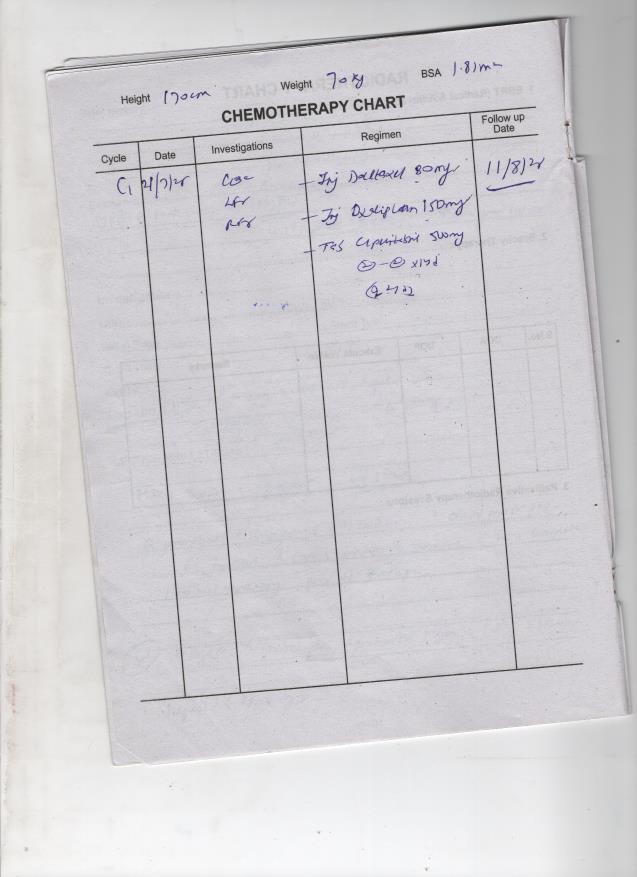 Height 170cm Weight 70kg BSA 1.81m2
CHEMOTHERAPY CHART
Cycle Date Investigations Regimen Follow up Date
C1 21/7/2 CBC - Inj Docetaxel 80mg 11/8/2
LFT - Inj Oxaliplatin 150mg
RFT
- Tab Capecitabine 500mg
2 - 2 x14d